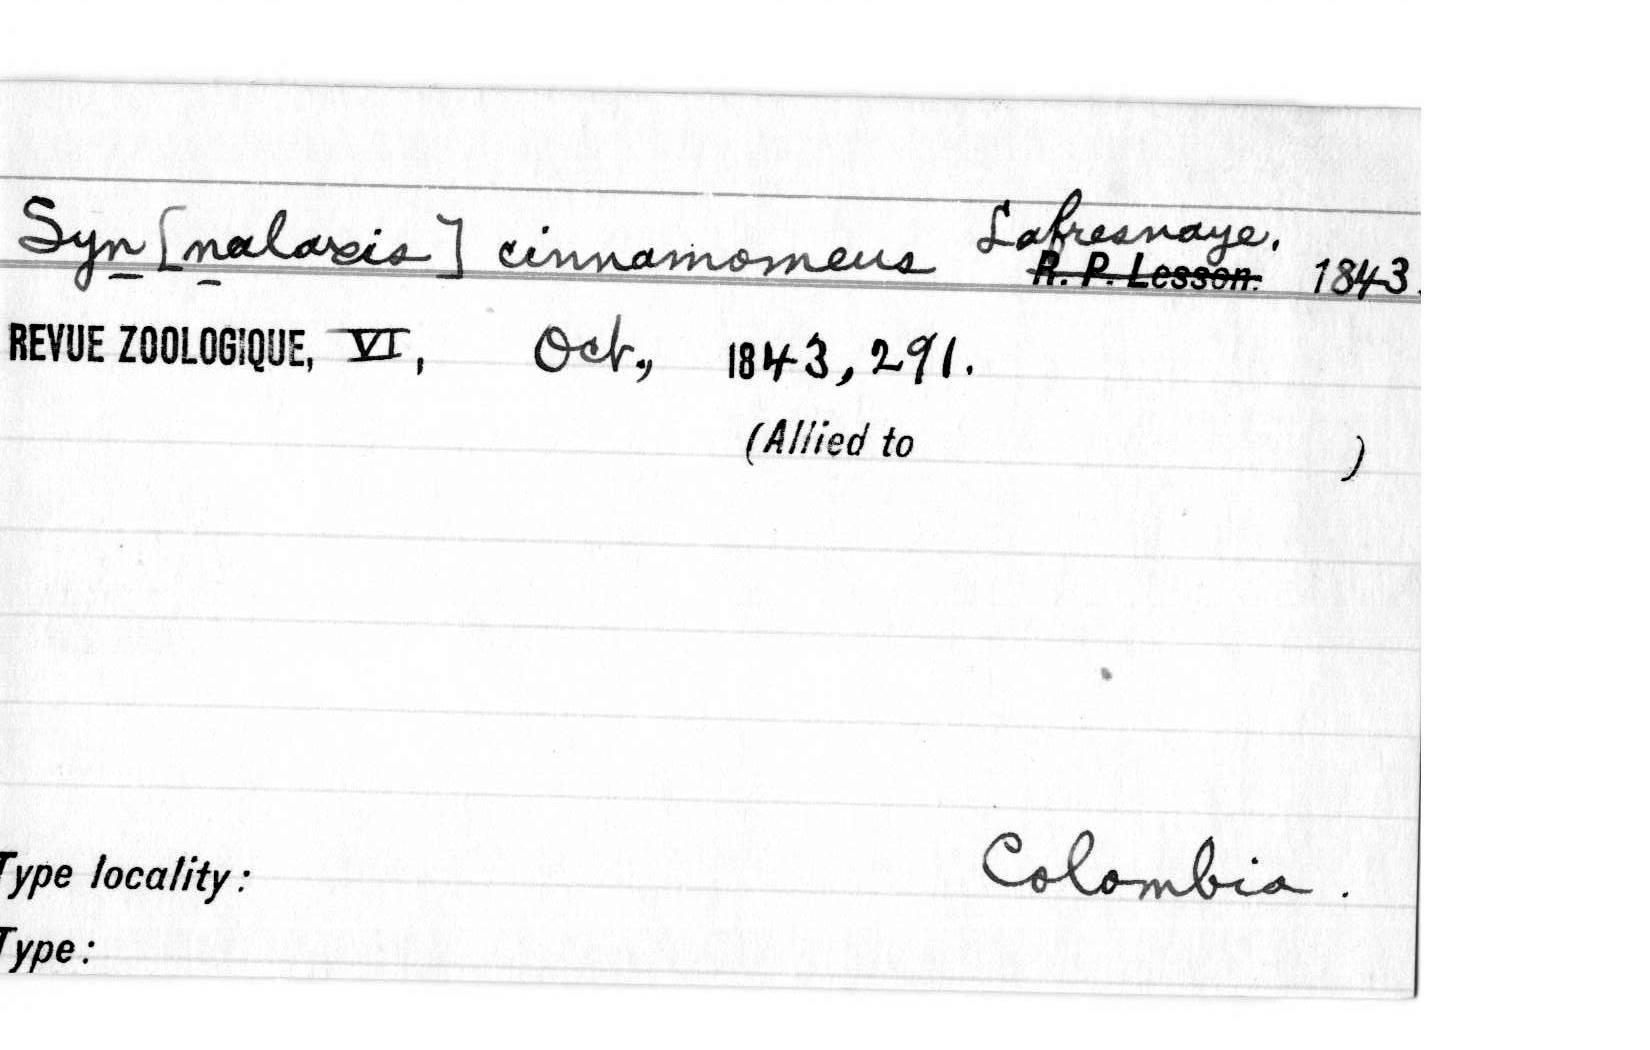 Syn[nalaxis] cinnamomeus Lafresnaye.
R. P. Lesson. 1843.
REVUE ZOOLOGIQUE, VI, Oct., 1843, 291.
(Allied to )
Type locality: Colombia.
Type: